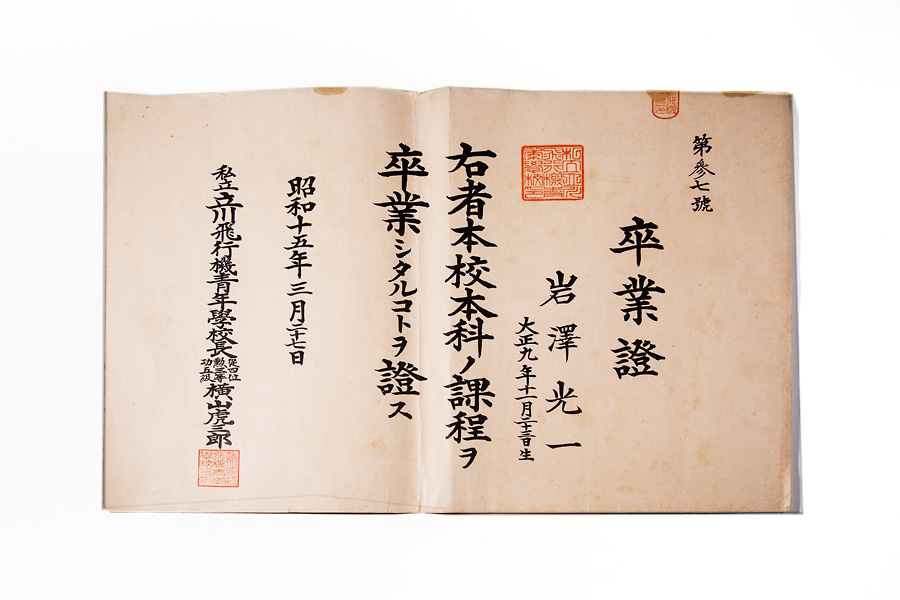 第参七號
卒業證
岩澤光一
大正九年十一月二十三日生
右者本校本科ノ課程ヲ
卒業シタルコトヲ證ス
昭和十五年三月二十七日
私立立川飛行機青年學校長 從四位 勲三等 功五級 横山虎三郎